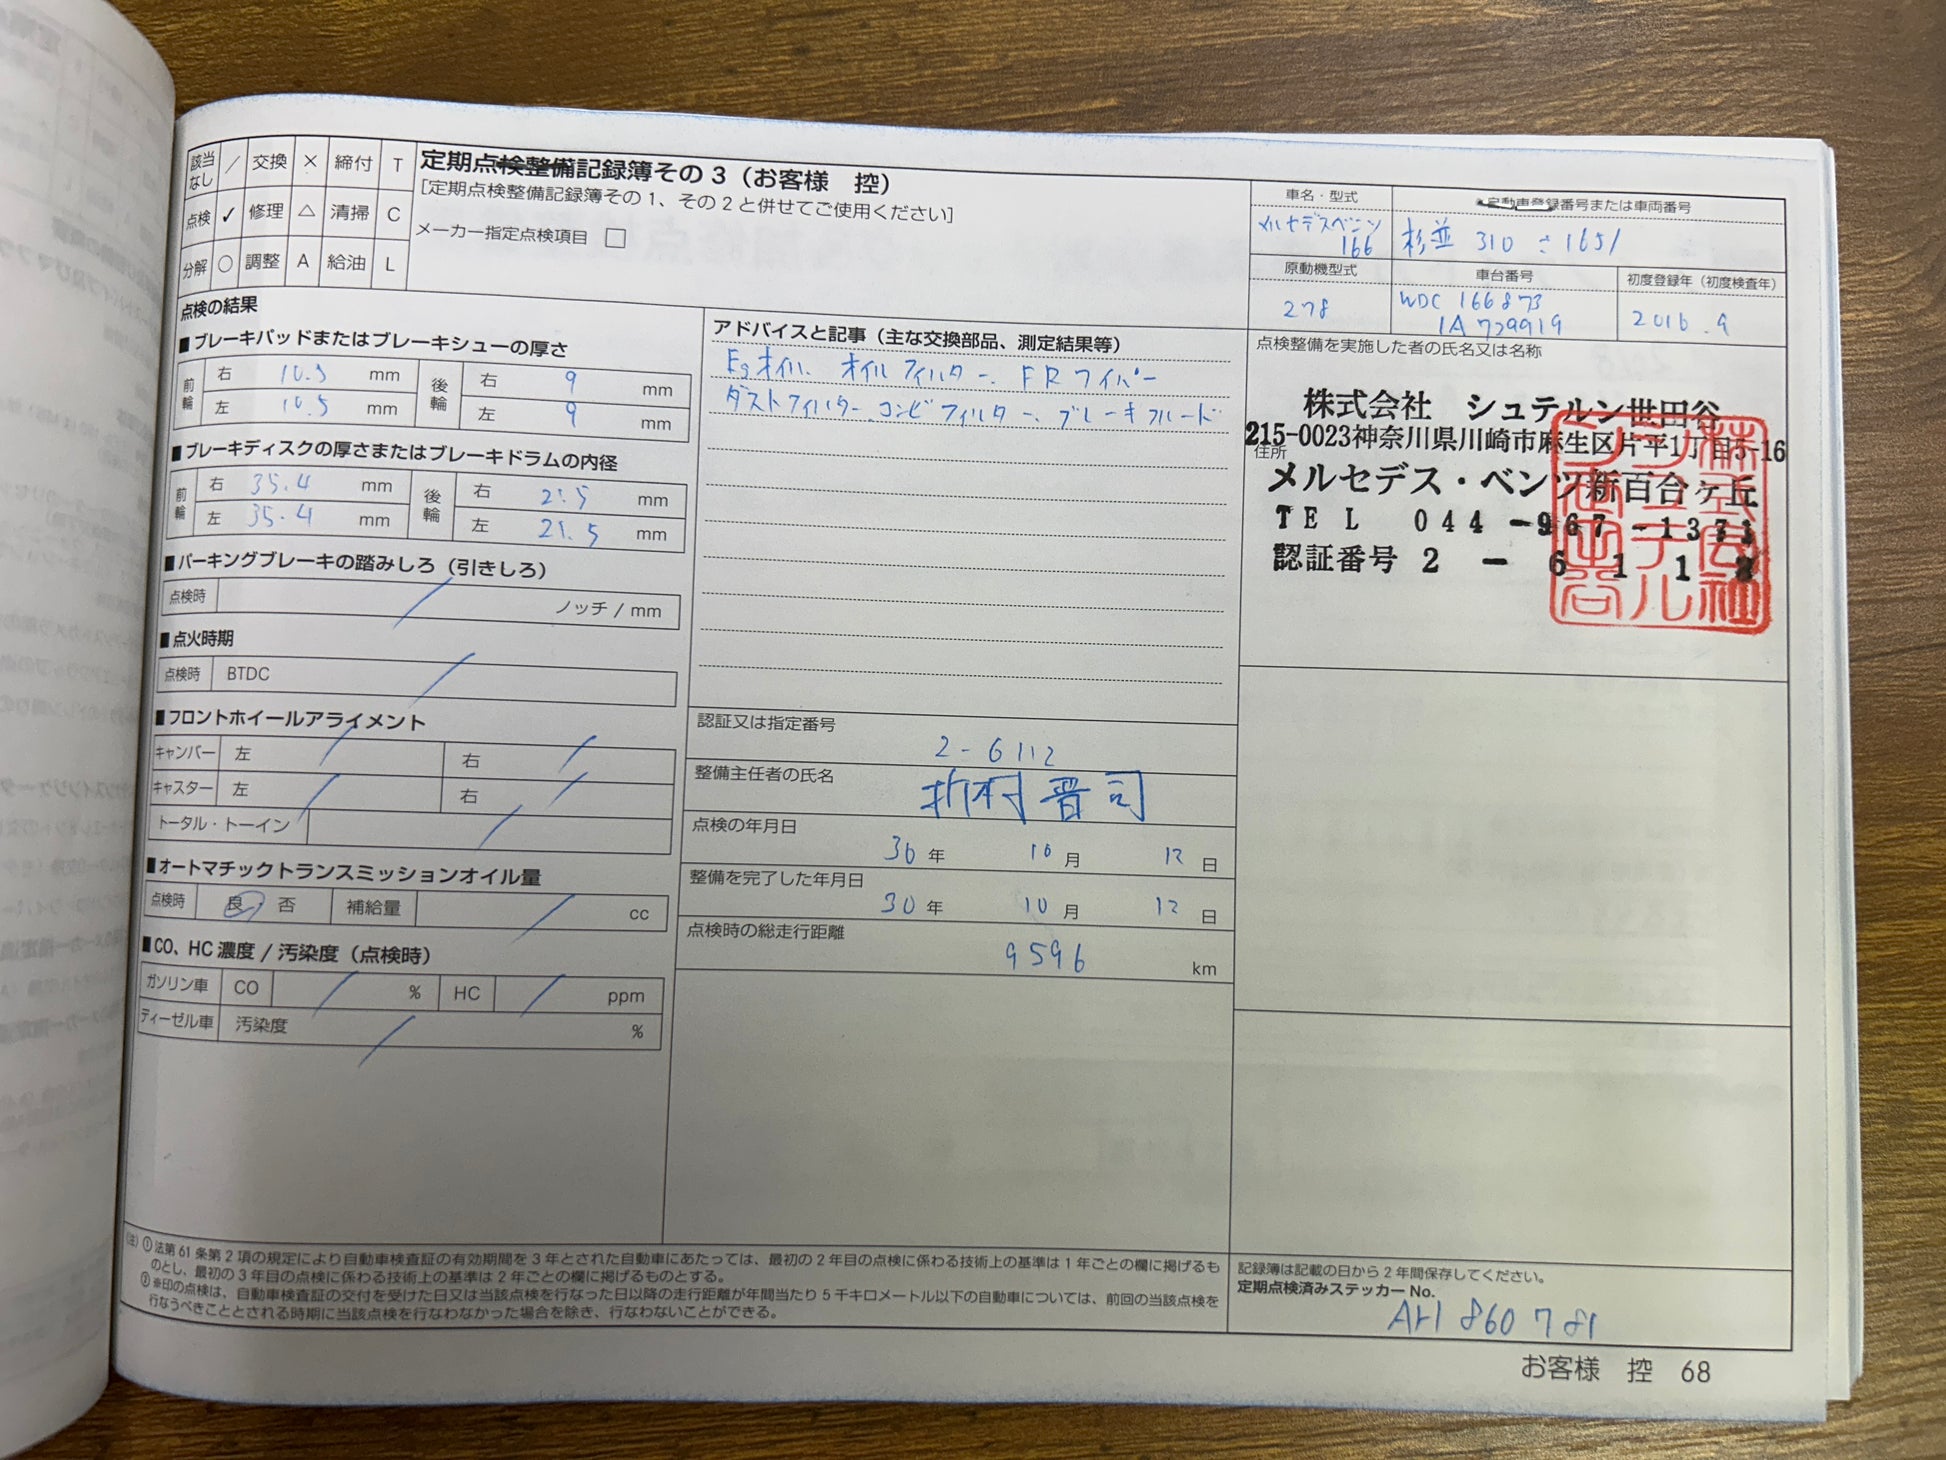 該当なし ／ 交換 × 締付 T
点検 ✓ 修理 △ 清掃 C
分解 ○ 調整 A 給油 L
定期点検整備記録簿その3（お客様 控）
［定期点検整備記録簿その1、その2と併せてご使用ください］
メーカー指定点検項目 □
車名・型式
メルセデスベンツ
166
自動車登録番号または車両番号
杉並 310 さ 1651
原動機型式
278
車台番号
WDC 166873
1A 729919
初度登録年（初度検査年）
2016.9
点検の結果
■ブレーキパッドまたはブレーキシューの厚さ
前輪 右 10.5 mm 後輪 右 9 mm
左 10.5 mm 左 9 mm
■ブレーキディスクの厚さまたはブレーキドラムの内径
前輪 右 35.4 mm 後輪 右 21.5 mm
左 35.4 mm 左 21.5 mm
■パーキングブレーキの踏みしろ（引きしろ）
点検時 ／ ノッチ / mm
■点火時期
点検時 BTDC ／
■フロントホイールアライメント
キャンバー 左 ／ 右 ／
キャスター 左 ／ 右 ／
トータル・トーイン ／
■オートマチックトランスミッションオイル量
点検時 良 否 補給量 ／ cc
■CO、HC濃度 / 汚染度（点検時）
ガソリン車 CO ／ % HC ／ ppm
ディーゼル車 汚染度 ／ %
アドバイスと記事（主な交換部品、測定結果等）
Egオイル、オイルフィルター、FRワイパー
ダストフィルター、コンビフィルター、ブレーキフルード
認証又は指定番号
2-6112
整備主任者の氏名
折村 晋司
点検の年月日
30年 10月 12日
整備を完了した年月日
30年 10月 12日
点検時の総走行距離
9596 km
点検整備を実施した者の氏名又は名称
株式会社 シュテルン世田谷
215-0023神奈川県川崎市麻生区片平1丁目5-16
住所
メルセデス・ベンツ新百合ヶ丘
TEL 044-967-1371
認証番号 2-6112
（注）①法第61条第2項の規定により自動車検査証の有効期間を3年とされた自動車にあたっては、最初の2年目の点検に係わる技術上の基準は1年ごとの欄に掲げるも
のとし、最初の3年目の点検に係わる技術上の基準は2年ごとの欄に掲げるものとする。
②※印の点検は、自動車検査証の交付を受けた日又は当該点検を行なった日以降の走行距離が年間当たり5千キロメートル以下の自動車については、前回の当該点検を
行なうべきこととされる時期に当該点検を行なわなかった場合を除き、行なわないことができる。
記録簿は記載の日から2年間保存してください。
定期点検済みステッカーNo.
AH 860781
お客様 控 68